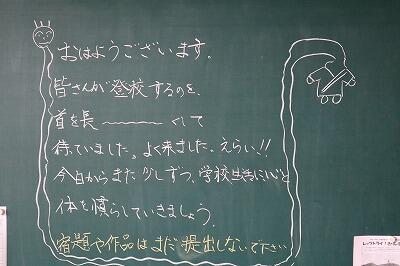 おはようございます。
皆さんが登校するのを、
首を長～～～くして
待っていました。よく来ました。えらい!!
今日からまた少しずつ、学校生活に心と
体を慣らしていきましょう。
宿題や作品はまだ提出しないで下さい